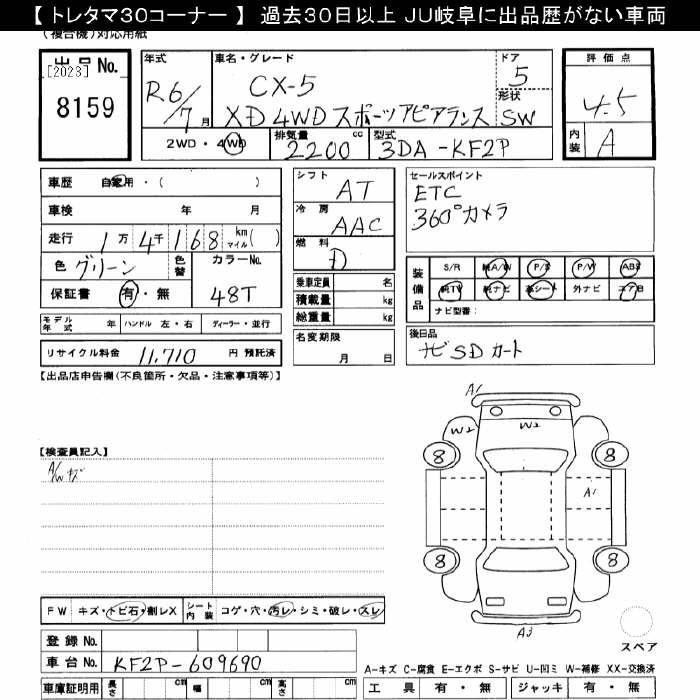 【 トレタマ30コーナー 】 過去30日以上 JU岐阜に出品歴がない車両
(複合機)対応用紙
出品 No.
[2023]
8159
年式 車名・グレード ドア
R6/7月 CX-5 5
形状
XD 4WD スポーツアピアランス SW
2WD・4WD 排気量 2200 cc 型式 3DA-KF2P
評価点
4.5
内装 A
車歴 自家用・( )
車検 年 月
走行 1万 4千 1 6 8 km マイル( )
色 グリーン 色替 カラーNo.
保証書 有・無 48T
モデル年式 年 ハンドル 左・右 ディーラー・並行
リサイクル料金 11,710 円 預託済
シフト AT
冷房 AAC
燃料 D
乗車定員 名
積載量 kg
総重量 kg
名変期限
月 日
セールスポイント
ETC
360°カメラ
装備品 S/R 純A/W P/S P/W ABS
純TV 純ナビ 革シート 外ナビ エアB
ナビ型番:
後日品
ナビSDカード
【出品店申告欄(不良箇所・欠品・注意事項等)】
【検査員記入】
A/W キズ
A1
W2 W2
8 8
A1
8 8
A3
スペア
FW キズ・トビ石・割レX シート内装 コゲ・穴・汚レ・シミ・破レ・スレ
登録 No.
車台 No. KF2P-609690
車庫証明用 長さ cm 幅 cm 高さ cm
A-キズ C-腐食 E-エクボ S-サビ U-凹ミ W-補修 XX-交換済
工具 有・無 ジャッキ 有・無